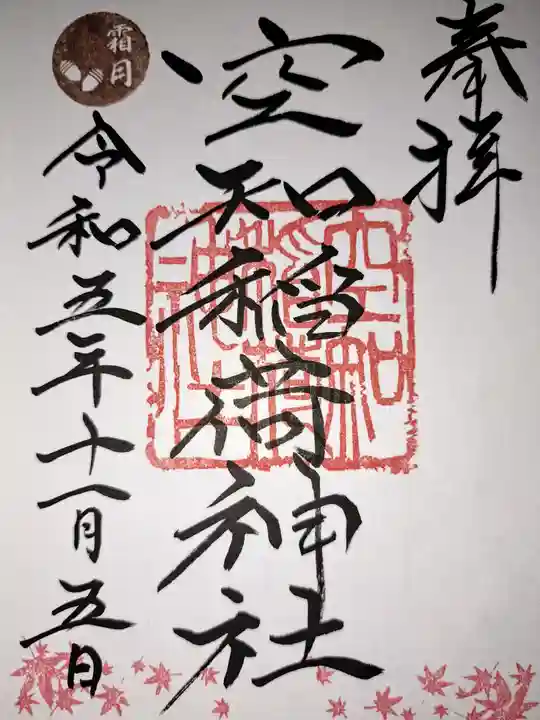 奉拝
空知稲荷神社
空知
稲荷
神社
霜月
令和五年十一月五日